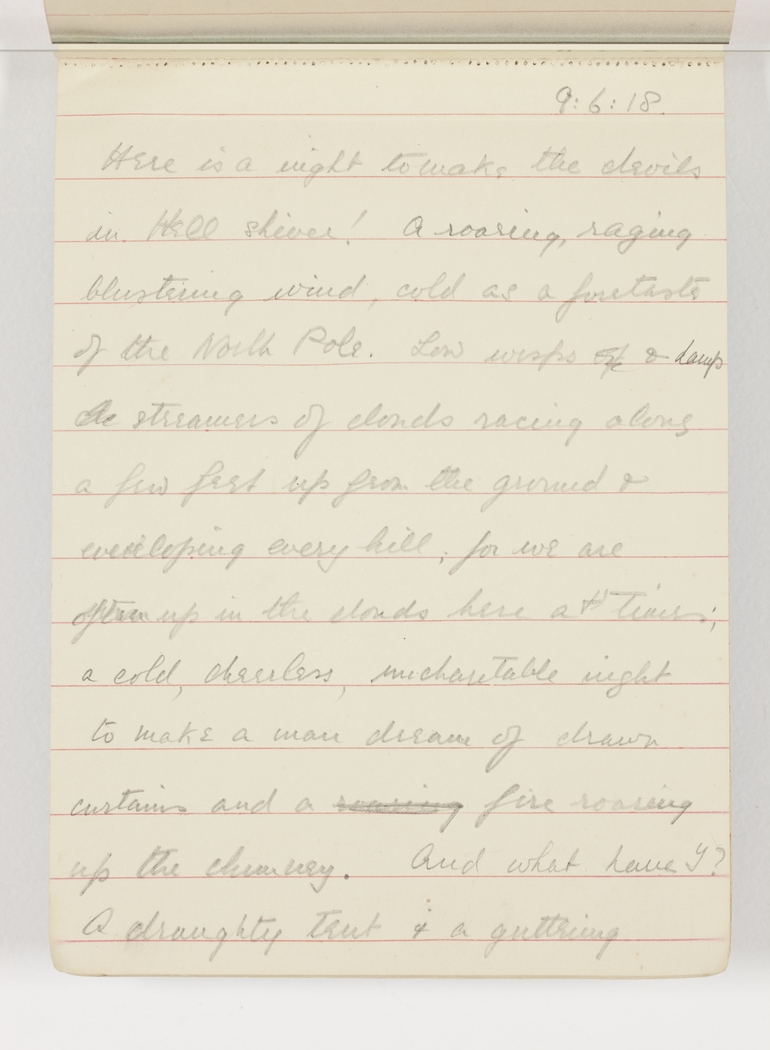 9:6:18.
Here is a night to make the devils
in Hell shiver! A roaring, raging
blustering wind, cold as a foretaste
of the North Pole. Low wisps & damp
streamers of clouds racing along
a few feet up from the ground &
enveloping every hill, for we are
often up in the clouds here at times;
a cold, cheerless, uncharitable night
to make a man dream of drawn
curtains and a roaring fire roaring
up the chimney. And what have I?
A draughty tent & a guttering